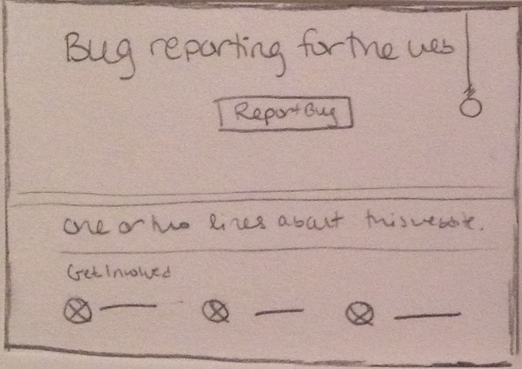 Bug reporting for the web
Report Bug
one or two lines about this website.
Get Involved